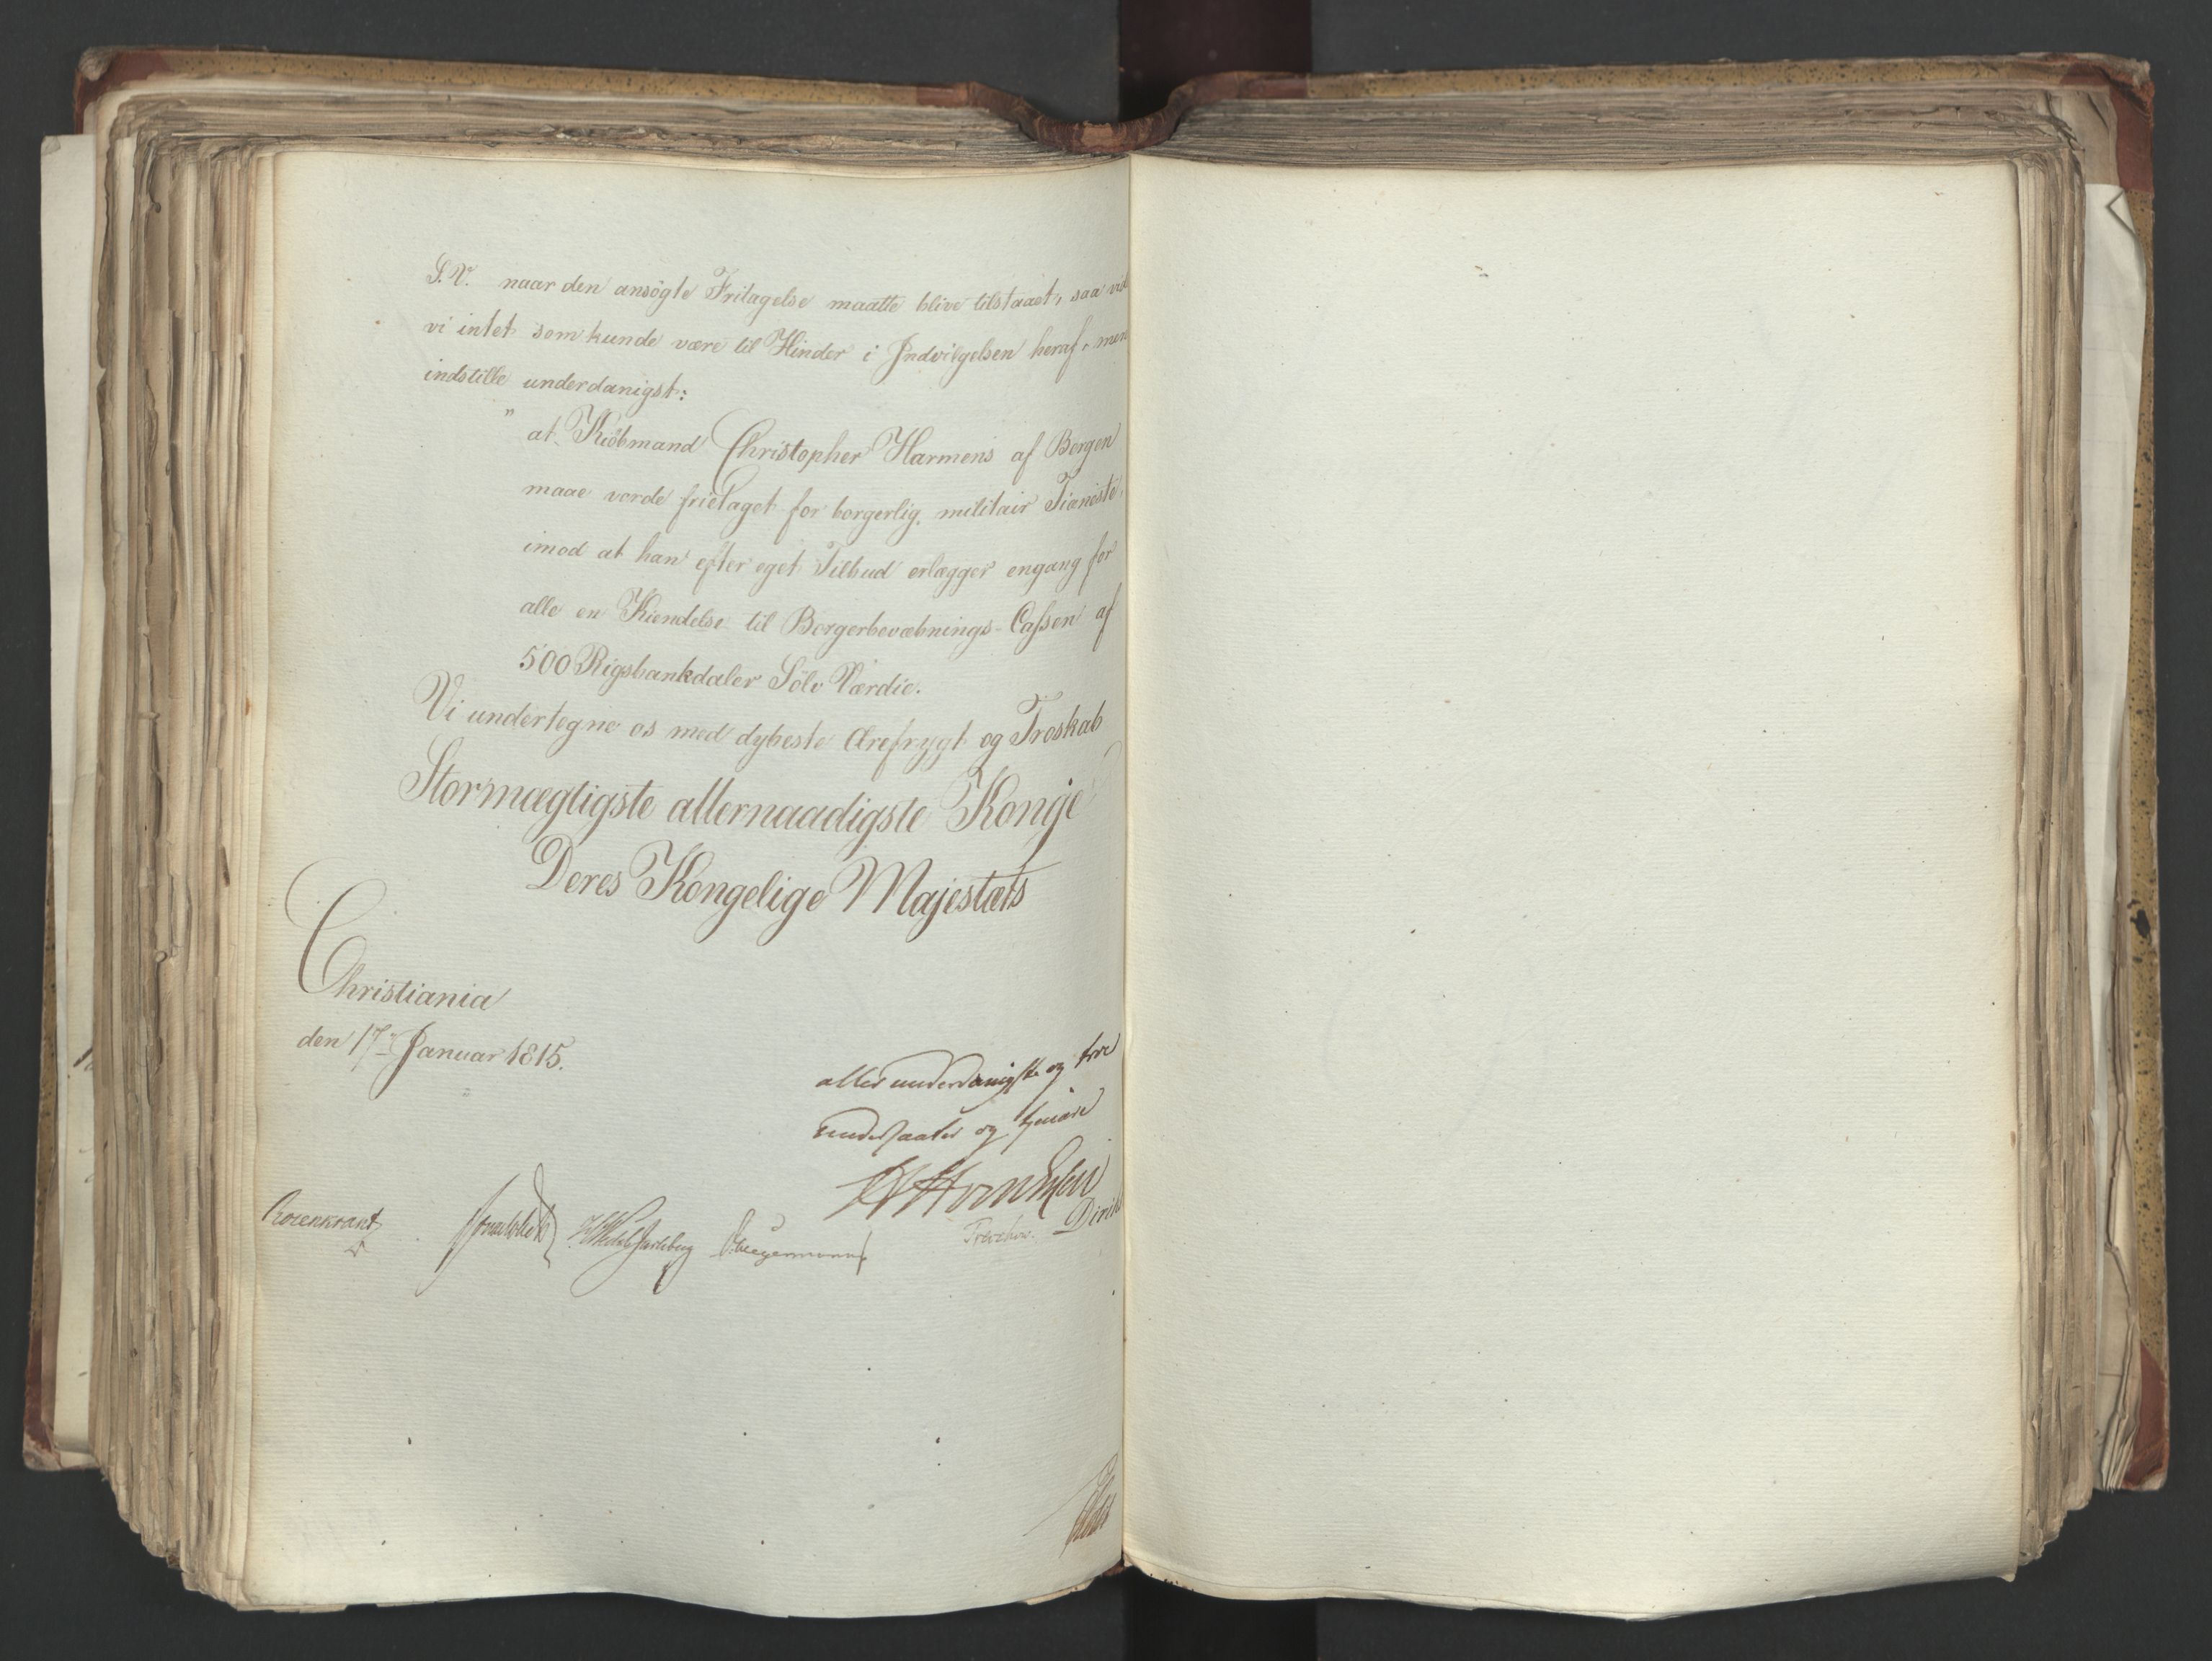 S.V. naar den ansøgte Fritagelse maatte blive tilstaaet, saa vid
vi intet som kunde være til Hinder i Indvilgelsen heraf, men
indstille underdanigst:
" at Kiøbmand Christopher Harmens af Bergen
maae vorde frietaget for borgerlig militair Tieniste,
imod at han efter eget Tilbud erlægger engang for
alle en Kiendelse til Borgerbevæbnings-Cassen af
500 Rigsbankdaler Sølv Værdie.
Vi undertegne os med dybeste Ærefrygt og Troskab
Stormægtigste allernaadigste Konge
Deres Kongelige Majestæts
Christiania
den 17de Januar 1815.
allerunderdanigste og troe
undersaatter og tjenere
Rosenkrantz Sommerhielm HWedelJarlsberg D:Hegermann Treschow Diriks